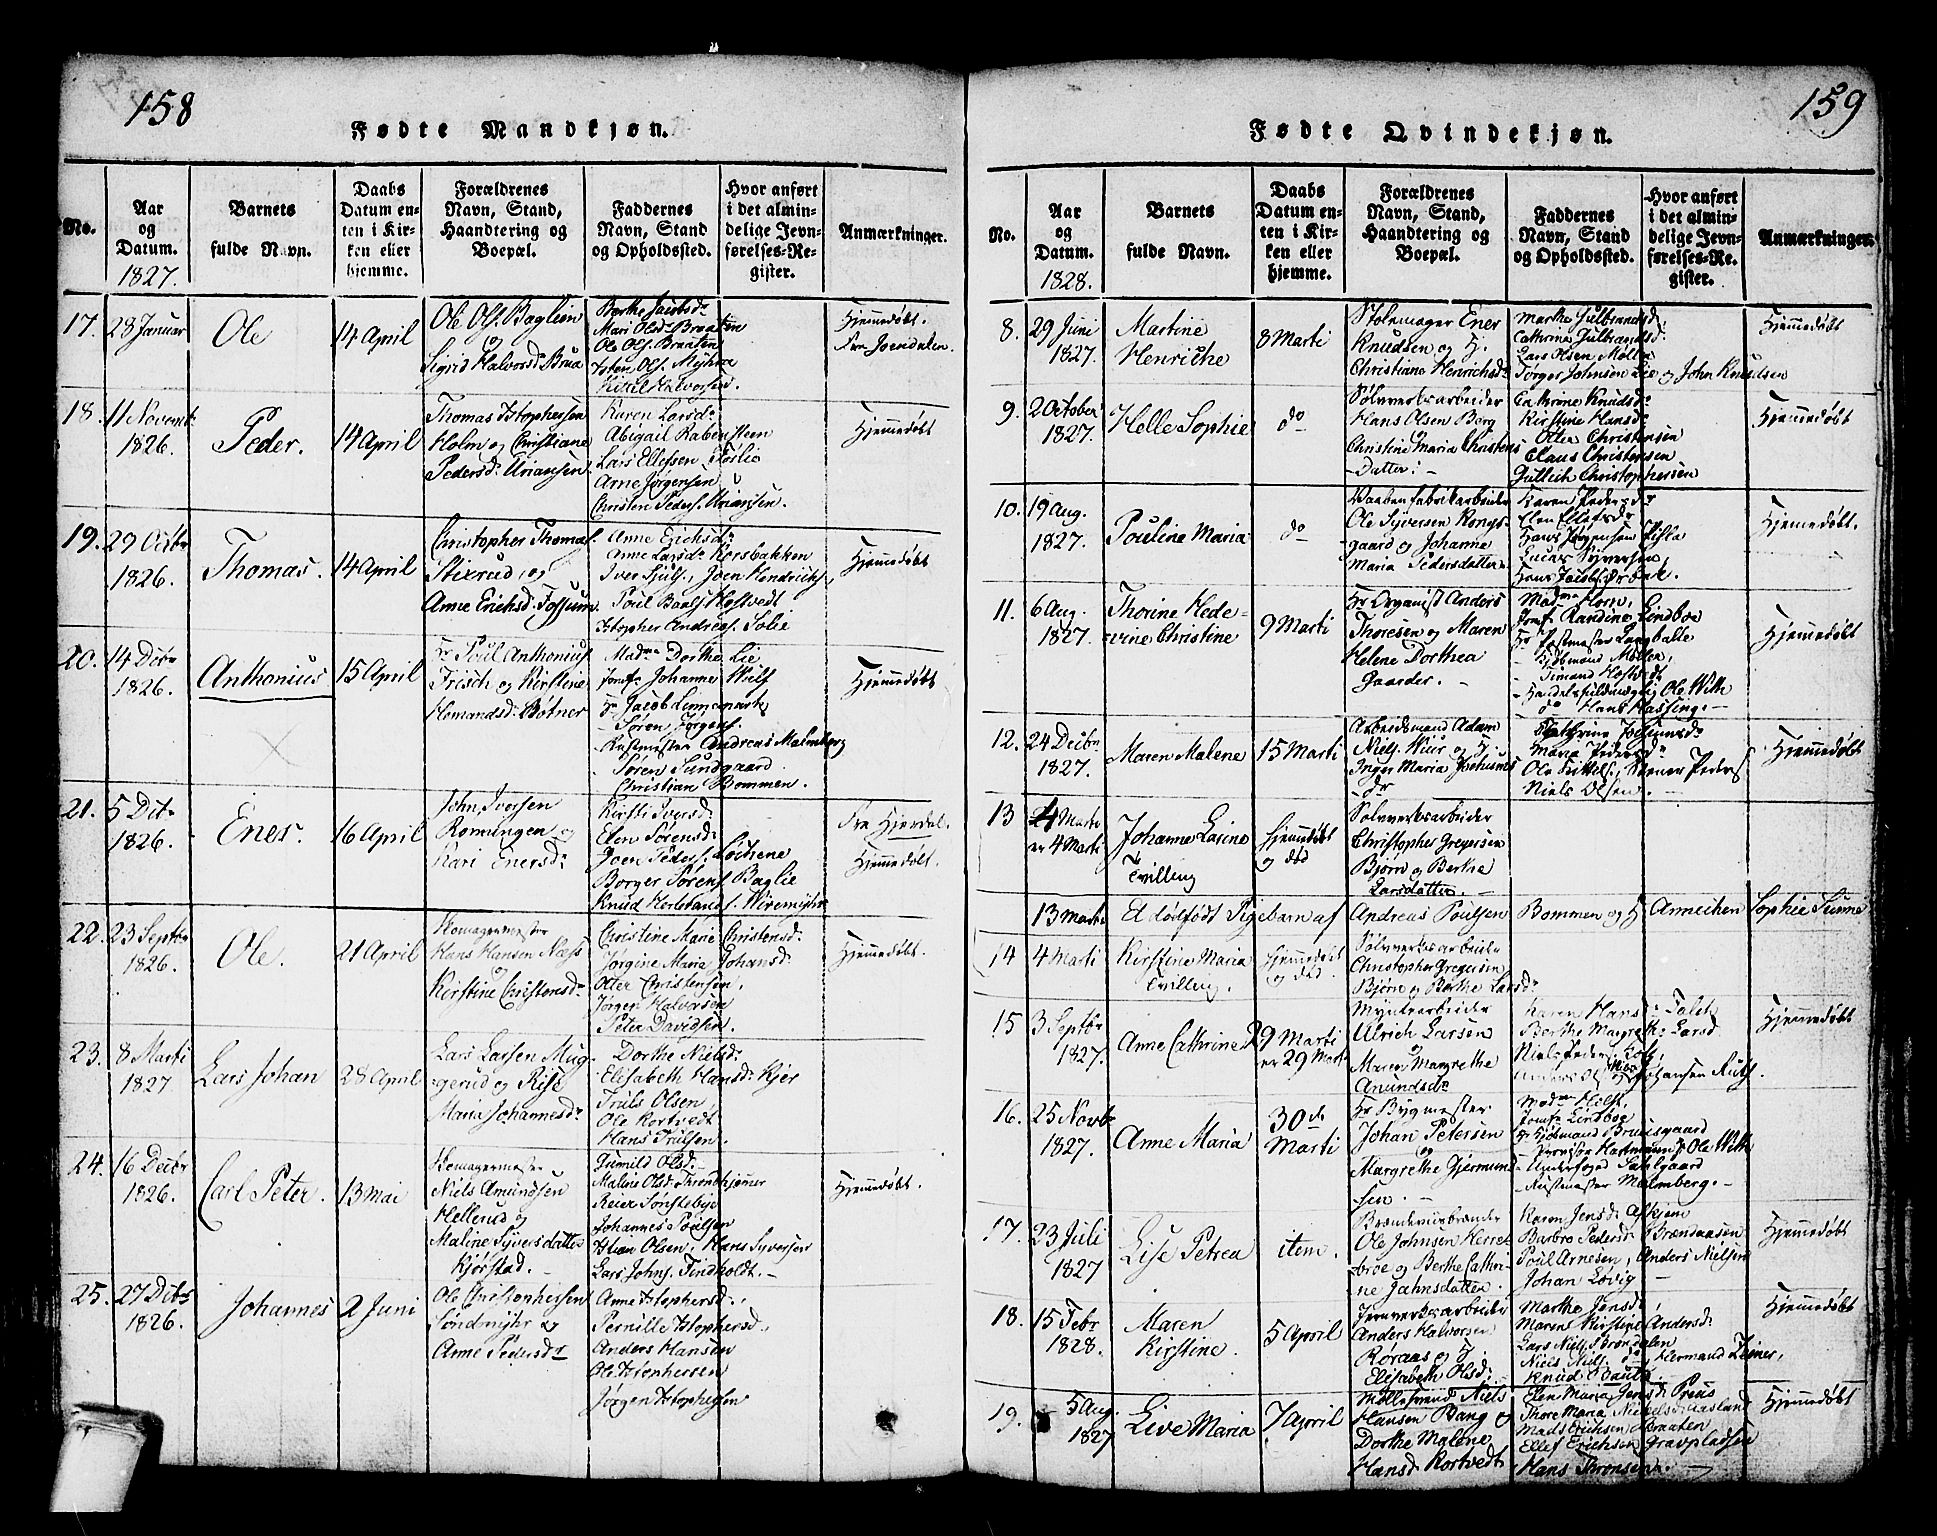 158
Fødte Mandkjøn.
No.
Aar
og
Datum.
1827.
Barnets
fulde Navn.
Daabs
Datum en-
ten i Kir-
ken eller
hjemme.
Forældrenes
Navn, Stand,
Haandtering og
Boepæl.
Faddernes
Navn, Stand
og Opholdssted.
Hvor anført
i det almin-
delige Jevn-
førelses-Re-
gister.
Anmærkninger.
17.
28 Januar
Ole
14 April
Ole Ols. Baglien
og
Sigrid Halvorsdr Brua
Berthe Jacobsdr
Mari Olsdr Braaten
Ole Ols. Braaten
Isten Ols. Myhra
Kittel Halvorsen.
Hjemmedøbt.
Fra Joendalen.
18.
11 Novembr
1826.
Peder.
14 April
Thomas Xstophersen
Holm og Christiane
Pedersdr Uriansen.
Karen Larsdr
Abigail Rabensteen
Lars Ellefsen Foslie
Arne Jørgensen
Christen Peders. Uriansen.
Hjemmedøbt
19.
29 Octbr
1826.
Thomas.
14 April
Christopher Thomas.
Stixrud, og
Anne Erichsdr Fossum.
Anne Erichsdr
Anne Larsdr Korsbakken
Iver Sjuls., Joen Hendrichs.
Poul Baals. Hostvedt
Xstopher Andreas. Solie
Hjemmedøbt
20.
14 Decbr
1826.
Anthonius
15 April
Hr Poul Anthonius
Frisch og Kirstine
Hemandsdr Botner
Madme Dorthe Lie
Jomfr Johanne Wulf
Hr Jacob Linnemark
- Søren Jørgens.
- Rustmester Andreas Malmberg
- Søren Sundgaard
- Christian Bommen.
Hjemmedøbt
21.
5 Decbr
1826.
Ener.
16 April
John Iversen
Romningen og
Kari Enersdr
Kirsti Iversdr
Elen Sørensdr
Joen Peders. Lochene
Borger Sørens. Baglie
Knud Herbrands. Wiremyhr
Fra Hjerdal.
Hjemmedøbt.
22.
23 Septbr
1826.
Ole.
21 April
Skomagermester
Hans Hansen Næss
og
Kirstine Christensdr
Christine Marie Christensdr
Jørgine Maria Johansdr
Otter Christensen,
Jørgen Halvorsen
Peter Davidsen.
Hjemmedøbt.
23.
8 Marti
1827
Lars Johan
28 April
Lars Larsen Mug-
gerud og Rise
Maria Johannesdr
Dorthe Nielsdr
Elisabeth Hansdr Kjer
Truls Olsen,
Ole Kortvedt
Hans Trulsen.
24.
16 Decbr
1826.
Carl Peter.
13 Mai
Skomagermester
Niels Amundsen
Hellerud og
Maline Syversdatter
Kjørstad.
Gunild Olsdr
Maline Olsdr Trondhjemer
Reier Sønsteby
Johannes Poulsen
Xstian Olsen, Hans Syversen
Lars Johns. Findholdt.
Hjemmedøbt.
25.
27 Decbr
1826.
Johannes
2 Juni
Ole Christophersen
Søndmyhr og
Anne Pedersdr
Anne Xstophersdr,
Pernille Xstophersdr
Anders Hansen
Ole Xstophersen
Jørgen Xstophersen
159
Fødte Qvindekjøn.
No.
Aar
og
Datum.
1828.
Barnets
fulde Navn.
Daabs
Datum en-
ten i Kir-
ken eller
hjemme.
Forældrenes
Navn, Stand,
Haandtering og
Boepæl.
Faddernes
Navn, Stand
og Opholdssted.
Hvor anført
i det almin-
delige Jevn-
førelses-Re-
gister.
Anmærkninger.
8.
29 Juni
1827.
Martine
Henrikke
8 Marti
Stolemager Ener
Knudsen og H.
Christiane Henrichsdr
Marthe Gulbrandsdr
Cathrine Gulbrandsdr
Lars Olsen Møller
Tørger Johnsen Lie og John Knudsen
Hjemmedøbt
9.
2 October
1827.
Helle Sophie
do
Sølvverksarbeider
Hans Olsen Berg
og
Christine Maria Christens
Datter.
Cathrine Knudsdr
Kirstine Hansdr
Otter Christensen
Claus Christensen
Gullich Christophersen
Hjemmedøbt
10.
19 Aug.
1827.
Pouline Maria
do
Vaabenfabrikarbeider
Ole Syversen Kongs-
gaard og Johanne
Maria Pedersdatter
Karen Pedersdr
Elen Ellefsdr
Hans Jørgensen Fiska
Hans Jacobs. Ørbæk.
Hjemmedøbt.
11.
6 Aug.
1827.
Thorine Hede-
vine Christine
9 Marti
Hr Organist Anders
Thoresen og Maren
Helene Dorthea
Gaarder.
Madme Horn,
Jomfr Randine Lindboe
Hr Postmester Langballe
- Kjøbmand Møller,
- Simand Hostvedt
- Handelsfuldmægtig Ole With
- do Hans Hassing.
Hjemmedøbt
12.
24 Decbr
1827.
Maren Malene
15 Marti
Arbeidsmand Adam
Niels. Kuur og H.
Inger Maria Jochums
dr
Cathrine Jochumsdr
Maria Pedersdr
Ole Kittels., Steener Peders
Niels Olsen.
Hjemmedøbt
13
4 Marti
er 4 Marti
Johanne Larine
Tvilling
Hjemmedøbt
og død
Sølvverksarbeider
Christopher Gregersen
Bjørn og Berthe
Larsdatter.
13 Marti
Et dødfødt Pigebarn af
Andreas Poulsen
Bommen og H. Annichen Sophie Sunne
14
4 Marti
Kirstine Maria
Tvilling.
Hjemmedøbt
og død.
Sølvverksarbeider
Christopher Gregersen
Bjørn og Berthe Larsdr
15
3 Septbr
1827.
Anne Cathrine
29 Marti
er 29 Marti
Myntearbeider
Ulrich Larsen
og
Maren Margrethe
Anundsdr
Karen Hansdr
Berthe Margrethe Larsdr
Niels Peders. Holt,
Hjemmedøbt
16.
25 Novbr
1827.
Anne Maria
30te
Marti
Hr Bygmester
Johan Petersen
og
Margrethe Gjermund-
sen.
Madme Holst,
Jomfr Lindboe
Hr Kjøbmand Bruusgaard
- Provisor Hartmann & Ole With
- Underfoged Sahlgaard
- Rustmester Malmberg.
17.
23 Juli
1827
Lise Petrea
item.
Brændeviinbrænder
Ole Johnsen Herre-
broe og Berthe Cathri-
ne Jahnsdatter.
Karen Jensdr Askjem
Barbro Pedersdr Brændaasen
Poul Arnesen, Anders Nielsen
Johan Løvig
Hjemmedøbt
18.
15 Febr
1828.
Maren
Kirstine.
5 April
Jernverksarbeider
Anders Halvorsen
Røraas og H.
Elisabeth Olsdr
Marthe Jensdr,
Maren Kirstine Andersdr
Lars Niels. Brøndalen
Niels Niels. do, Hermand Zeiner,
Knud Pauls.
Hjemmedøbt
19.
5 Aug.
1827
Live Maria
7 April
Møllesvend Niels
Hansen Bang og
Dorthe Malene
Hansdr Kortvedt
Elen Maria Jensdr Preus
Thore Maria Nielsdr Aasland
Mads Erichsen Braaten
Ellef Erichsen Gravpladsen
Hans Thronsen.
Hjemmedøbt